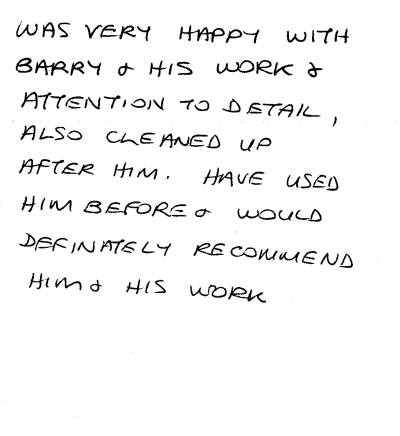 WAS VERY HAPPY WITH
BARRY & HIS WORK &
ATTENTION TO DETAIL,
ALSO CLEANED UP
AFTER HIM. HAVE USED
HIM BEFORE & WOULD
DEFINATELY RECOMMEND
HIM & HIS WORK